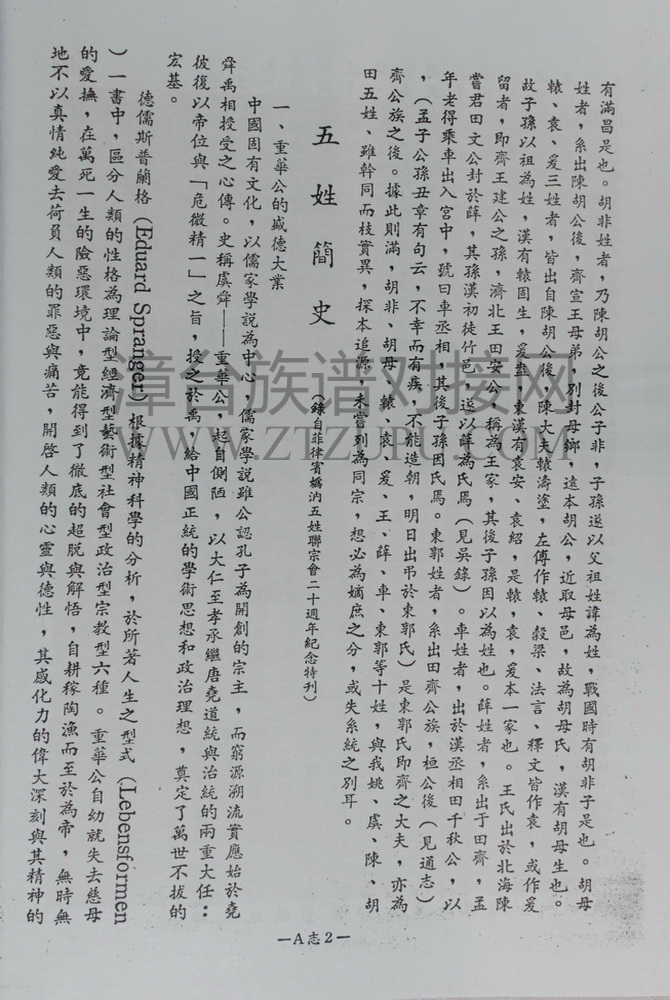 有滿昌是也。胡非姓者，乃陳胡公之後公子非，子孫遂以父祖姓諱為姓，戰國時有胡非子是也。胡母
姓者，系出陳胡公後，齊宣王母弟，別封母鄉，遠本胡公，近取母邑，故為胡母氏，漢有胡母生也。
轅、袁、爰三姓者，皆出自陳胡公後，陳大夫轅濤塗，左傳作轅、穀梁、法言、釋文皆作袁，或作爰
故子孫以祖為姓，漢有轅固生，爰盎，東漢有袁安、袁紹，是轅，袁，爰本一家也。王氏出於北海陳
留者，即齊王建公之孫，濟北王田安公，稱為王家，其後子孫因以為姓也。薛姓者，系出于田齊，孟
嘗君田文公封於薛，其孫漢初徙竹邑，遂以薛為氏焉（見吳錄）。車姓者，出於漢丞相田千秋公，以
年老得乘車出入宮中，號曰車丞相，其後子孫因氏焉。東郭姓者，系出田齊公族，桓公後（見通志）
，（孟子公孫丑章有句云，不幸而有疾，不能造朝，明日出弔於東郭氏）是東郭氏即齊之大夫，亦為
齊公族之後。據此則滿，胡非、胡母、轅、袁、爰、王、薛、車、東郭等十姓，與我姚、虞、陳、胡
田五姓、雖幹同而枝實異，探本追源，未嘗列為同宗，想必為嫡庶之分，或失系統之別耳。
五姓簡史
（錄自菲律賓媯汭五姓聯宗會二十週年紀念特刊）
一、重華公的盛德大業
中國固有文化，以儒家學說為中心，儒家學說雖公認孔子為開創的宗主，而窮源溯流實應始於堯
舜禹相授受之心傳。史稱虞舜——重華公，起自側陋，以大仁至孝承繼唐堯道統與治統的兩重大任：
彼後以帝位與「危微精一」之旨，授之於禹，給中國正統的學術思想和政治理想，奠定了萬世不拔的
宏基。
德儒斯普蘭格 (Eduard Spranger) 根據精神科學的分析，於所著人生之型式 (Lebensformen
）一書中，區分人類的性格為理論型經濟型藝術型社會型政治型宗教型六種。重華公自幼就失去慈母
的愛撫，在萬死一生的險惡環境中，竟能得到了徹底的超脫與解悟，自耕稼陶漁而至於為帝，無時無
地不以真情純愛去荷負人類的罪惡與痛苦，開啓人類的心靈與德性，其感化力的偉大深刻與其精神的
—A志2—
漳台族谱对接网
WWW.ZTZUPU.COM